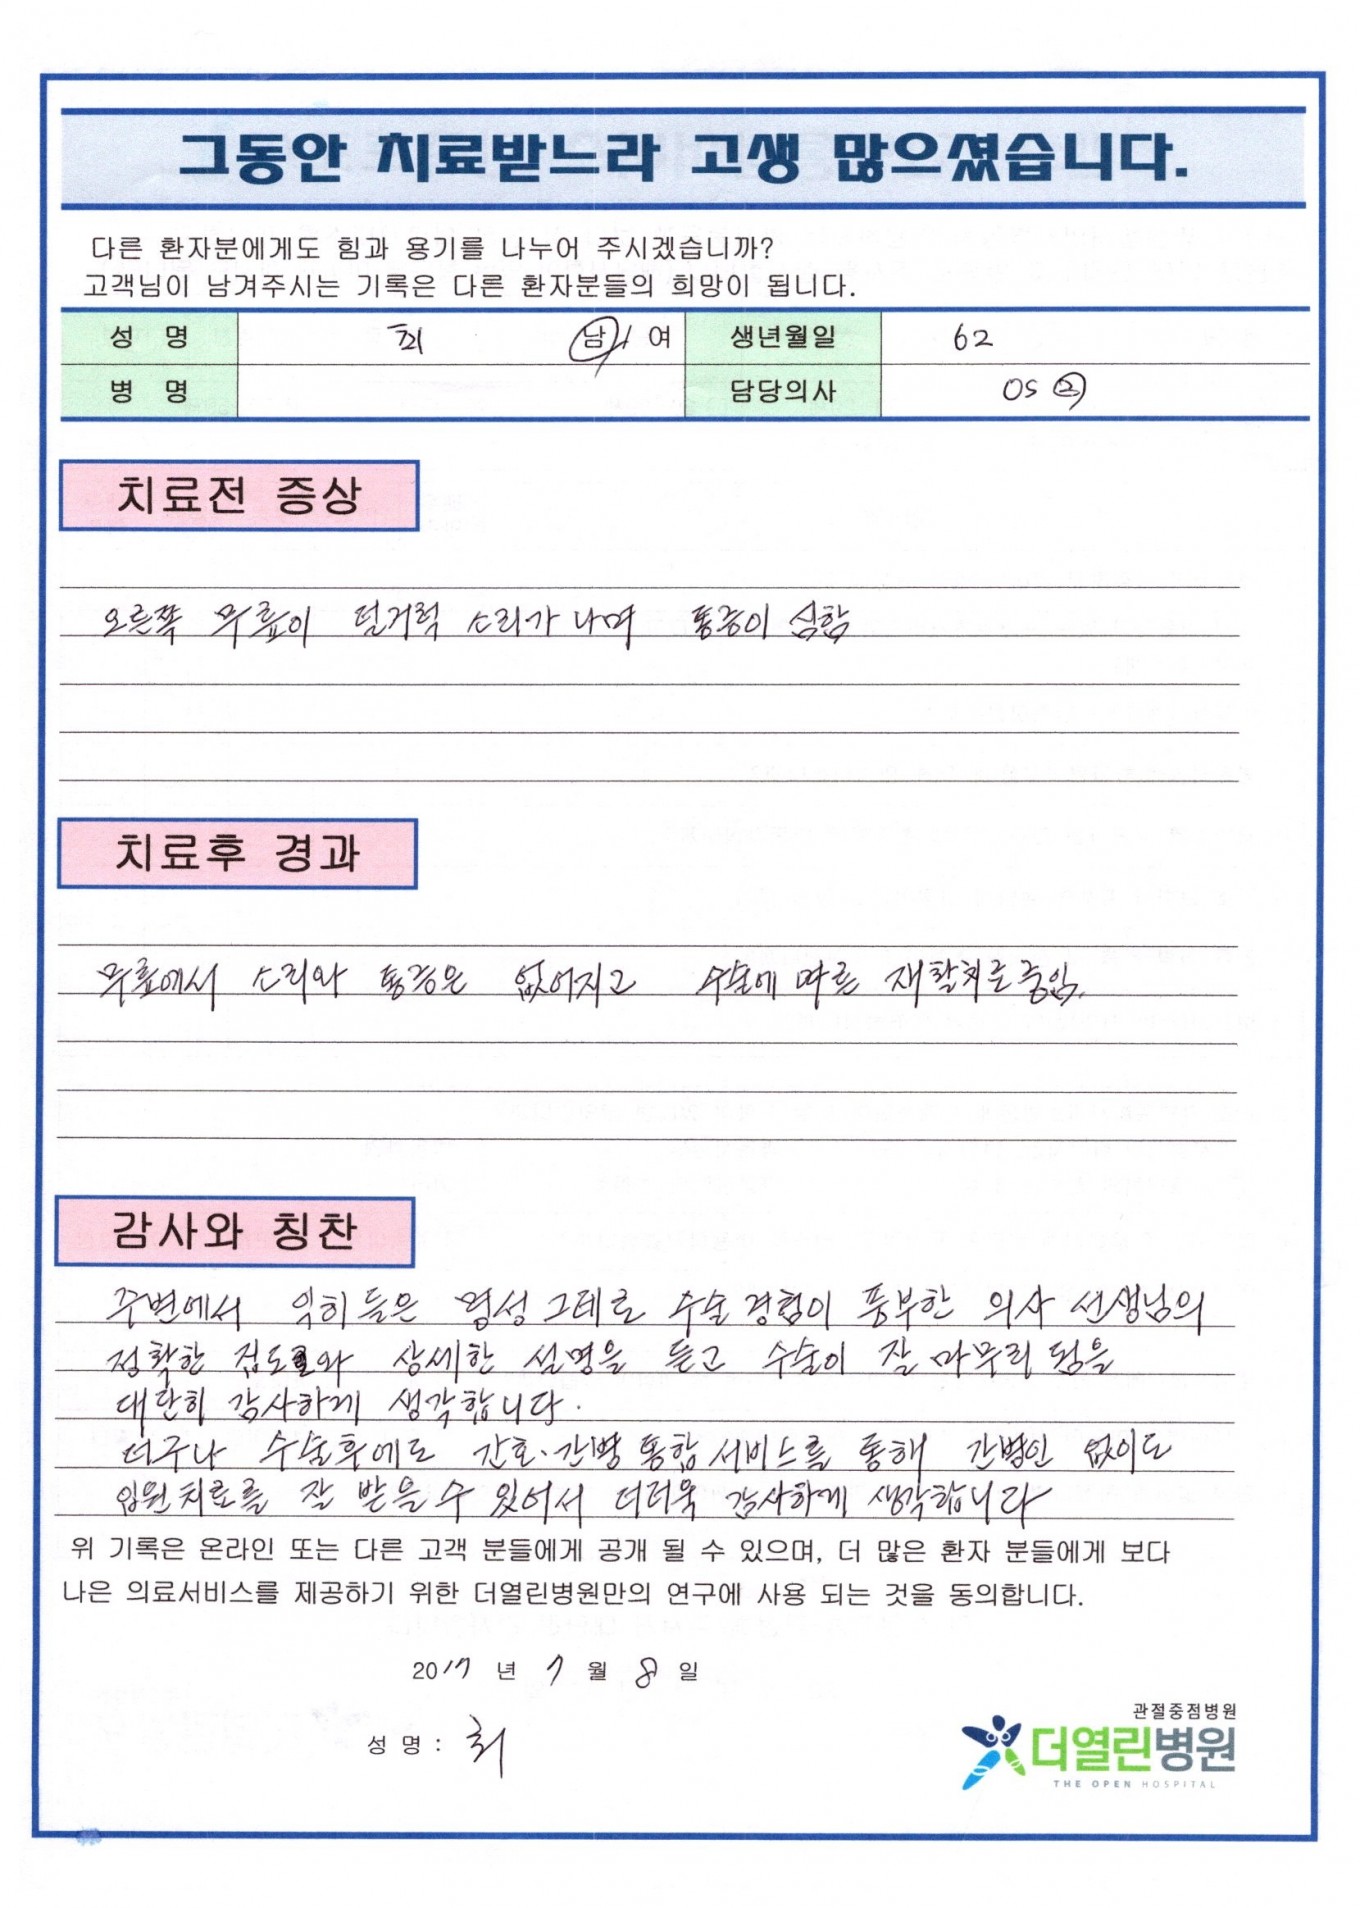 그동안 치료받느라 고생 많으셨습니다.
다른 환자분에게도 힘과 용기를 나누어 주시겠습니까?
고객님이 남겨주시는 기록은 다른 환자분들의 희망이 됩니다.
성 명 최 남 / 여 생년월일 62
병 명 담당의사 OS ②
치료전 증상
오른쪽 무릎이 덜거럭 소리가 나며 통증이 심함
치료후 경과
무릎에서 소리와 통증은 없어지고 수술에 따른 재활치료중임.
감사와 칭찬
주변에서 익히 들은 명성 그대로 수술경험이 풍부한 의사 선생님의
정확한 집도와 상세한 설명을 듣고 수술이 잘 마무리 됨을
대단히 감사하게 생각합니다.
더구나 수술후에도 간호·간병 통합서비스를 통해 간병인 없이도
입원치료를 잘 받을수 있어서 더더욱 감사하게 생각합니다
위 기록은 온라인 또는 다른 고객 분들에게 공개 될 수 있으며, 더 많은 환자 분들에게 보다
나은 의료서비스를 제공하기 위한 더열린병원만의 연구에 사용 되는 것을 동의합니다.
2017 년 7 월 8 일
성 명 : 최
관절중점병원
더열린병원
THE OPEN HOSPITAL